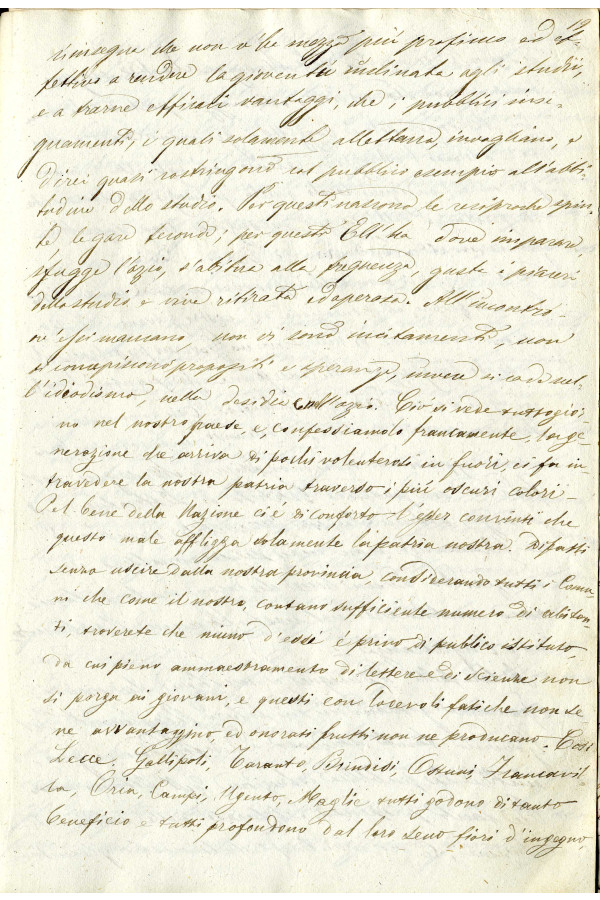 19
rinsegna che non v'ha mezzo più profimo ed ef-
fettivo a rendere la gioventù inclinata agli studii,
e a trarne efficaci vantaggi, che i pubblici inse-
gnamenti, i quali solamente allettano, invogliano, e
direi quasi costringono col pubblico esempio all'abbi-
tudine dello studio. Per questi nascono le reciproche spin-
te, le gare feconde; per questi l'età dove imparare
sfugge l'ozio, s'abitua alla frequenza, gusta i piaceri
dello studio e vive ritirata ed operosa. All'incontro
ov'essi mancano, non vi sono incitamenti, non
si concepiscono propositi e speranze, invece si cade nel-
l'idiodismo, nella desidia e nell'ozio. Ciò si vede tuttogior-
no nel nostro paese, e, confessiamolo francamente, la ge-
nerazione che arriva di pochi volenterosi in fuori, ci fa in-
travedere la nostra patria traverso i piú oscuri colori -
Pel bene della Nazione ci è di conforto l'esser convinti che
questo male affligga solamente la patria nostra. Difatti
senza uscire dalla nostra provincia, considerando tutti i Comu-
ni che come il nostro, contano sufficiente numero di abitan-
ti, troverete che niuno d'essi é privo di publico istituto,
da cui pieno ammaestramento di lettere e di scienze non
si porga ai giovani, e questi con lodevoli fatiche non se
ne avvantaggino, ed onorati frutti non ne producano. Così
Lecce, Gallipoli, Taranto, Brindisi, Ostuni, Francavil-
la, Oria, Campi, Ugento, Maglie tutti godono di tanto
beneficio e tutti profondono dal loro seno fiori d'ingegno,